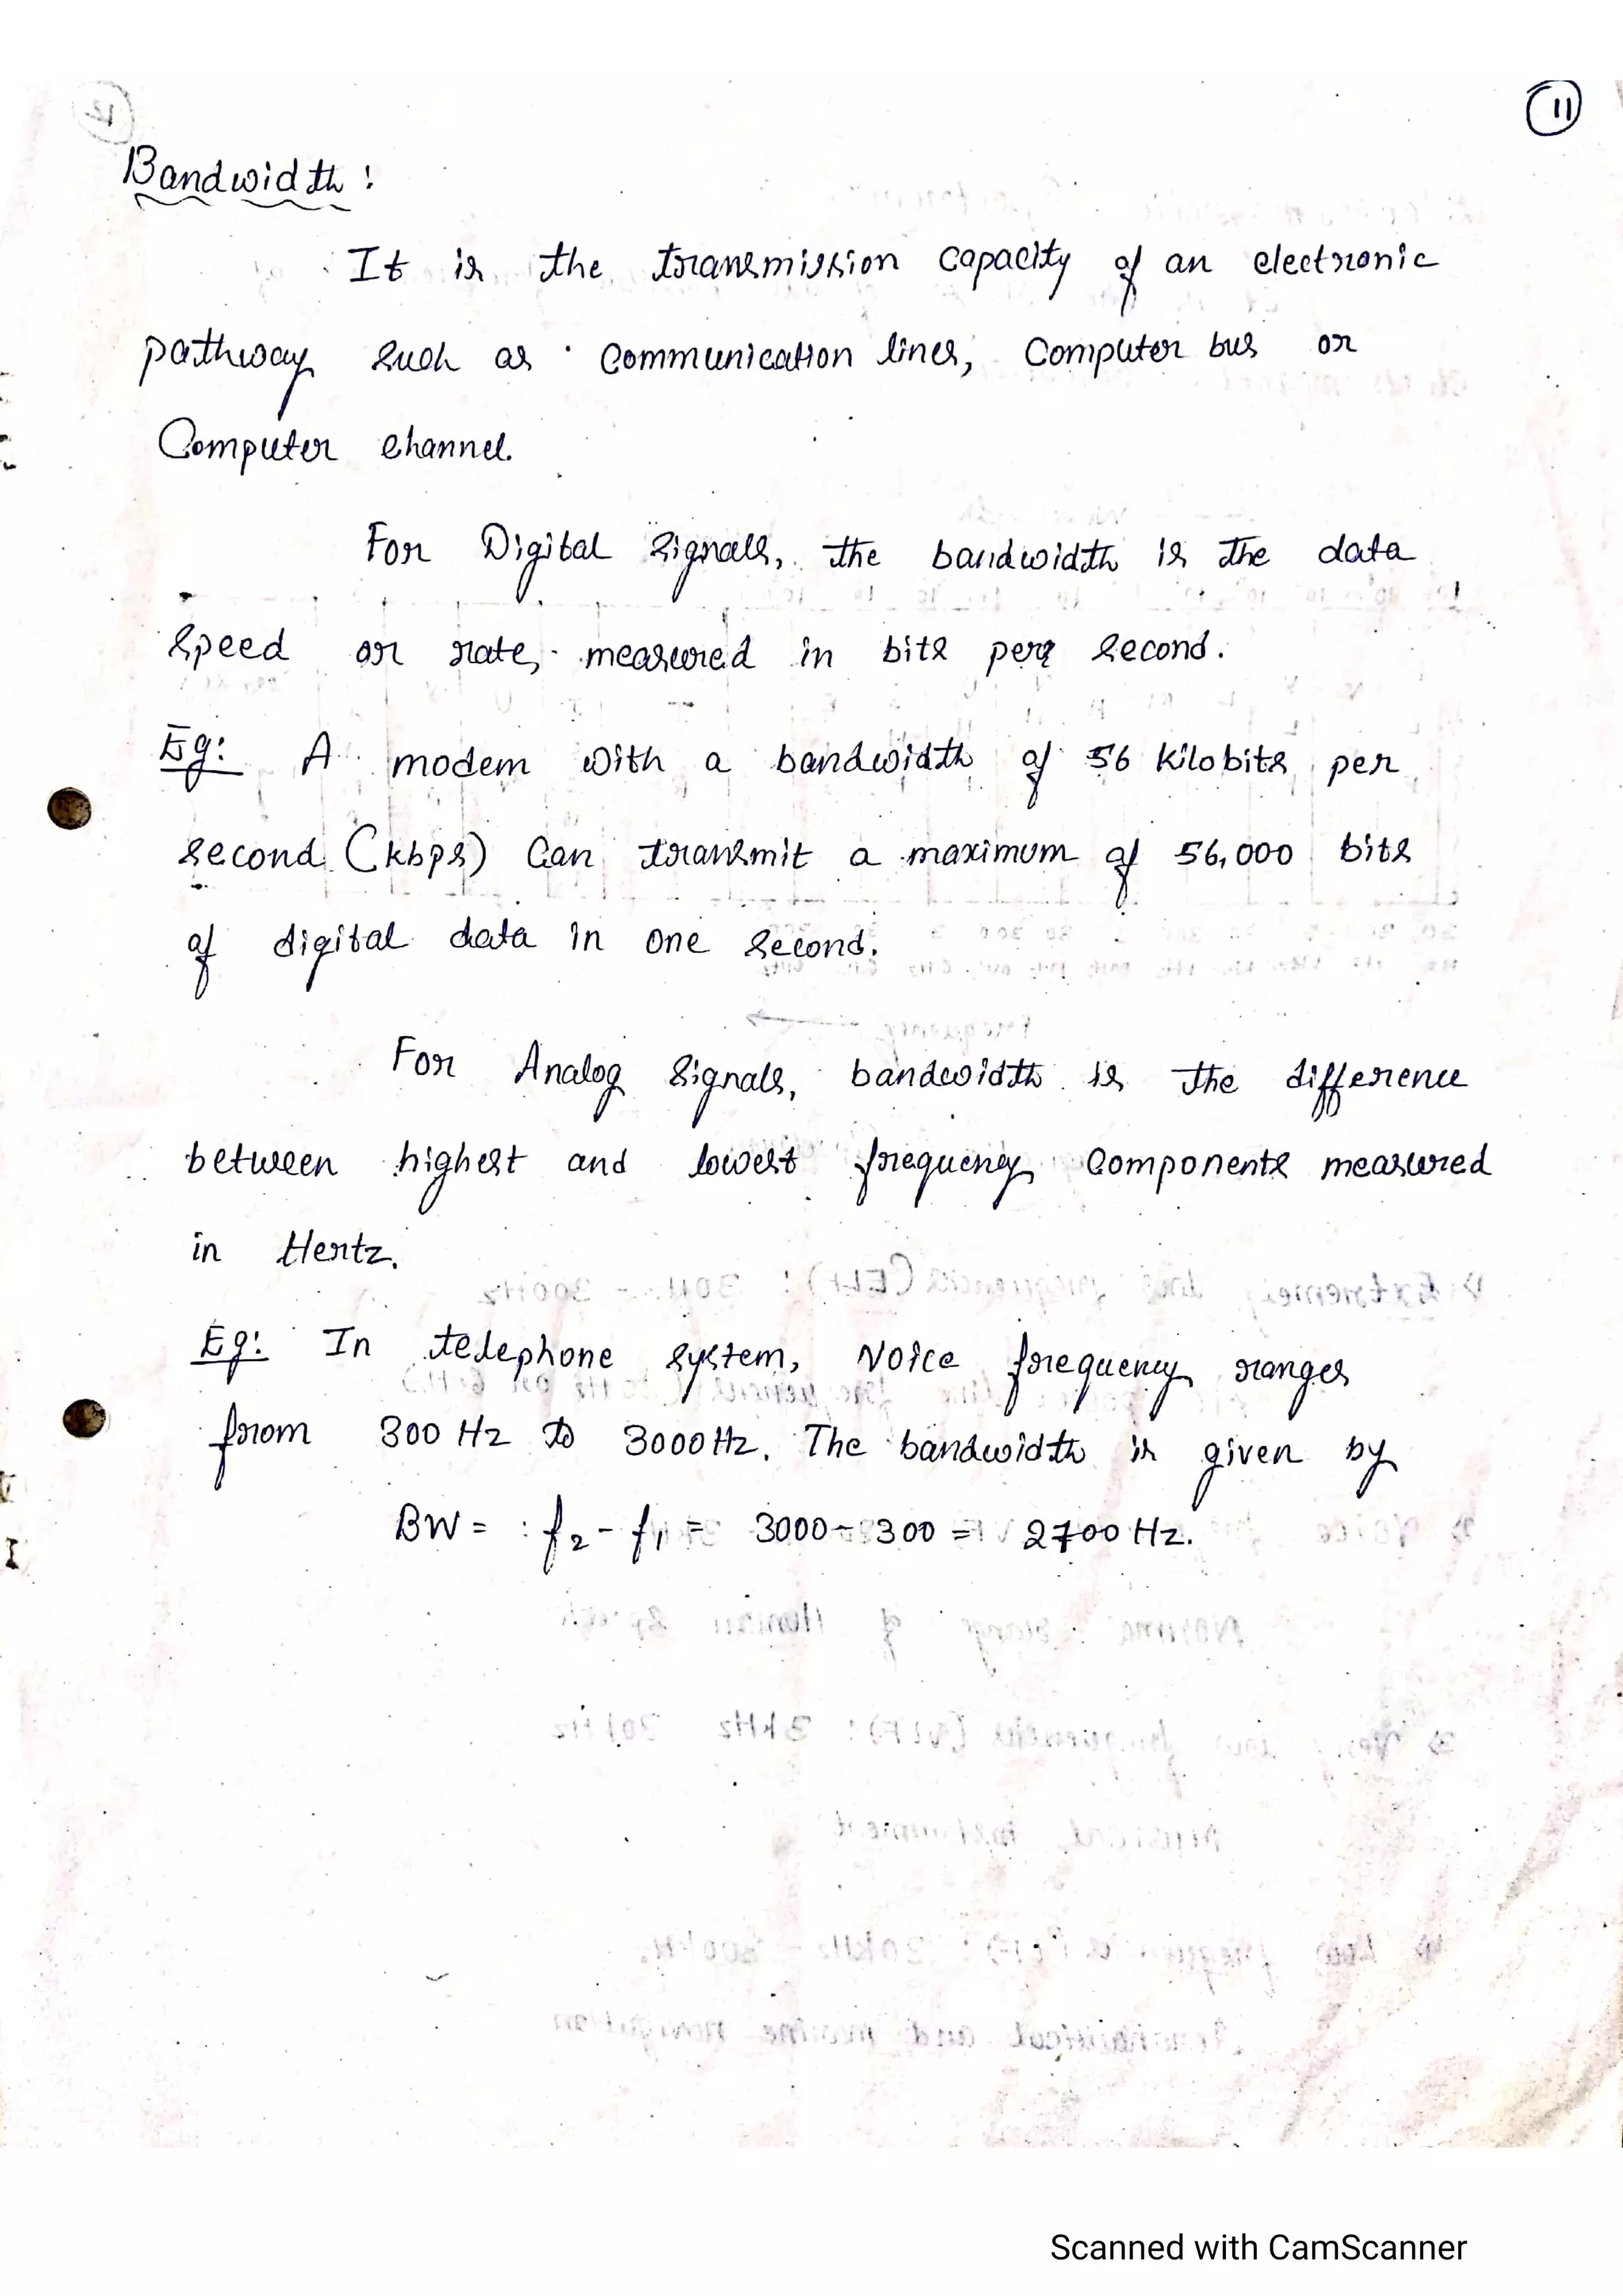 11
Bandwidth :
It is the transmission capacity of an electronic
pathway such as communication lines, computer bus or
Computer channel.
For Digital signals, the bandwidth is the data
speed or rate, measured in bits per second.
Eg: A modem with a bandwidth of 56 kilobits per
second (kbps) can transmit a maximum of 56,000 bits
of digital data in one second.
For Analog signals, bandwidth is the difference
between highest and lowest frequency components measured
in Hertz.
Eg: In telephone system, voice frequency ranges
from 300 Hz to 3000 Hz. The bandwidth is given by
BW = f₂ - f₁ = 3000 - 300 = 2700 Hz.
Scanned with CamScanner